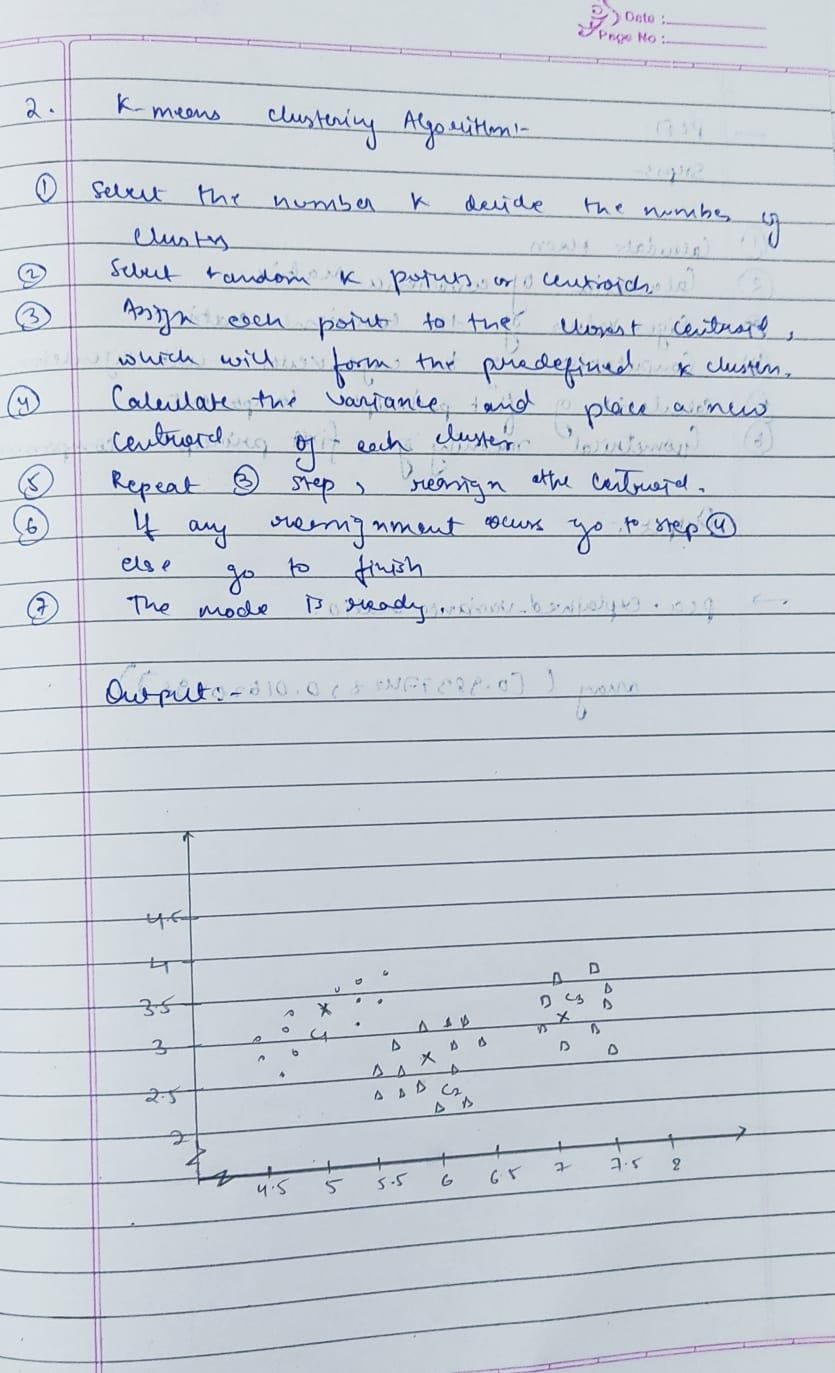 Date :
Page No :
2. K-means clustering Algorithm:-
① Select the number K decide the number of
clusters
② Select random K points or centroids.
③ Assign each point to the closest centroid,
which will form the predefined K clusters.
④ Calculate the variance and place a new
centroid of each cluster
⑤ Repeat ③ step, reassign the centroid.
⑥ If any reassignment occurs go to step ④
else go to finish
⑦ The mode is ready.
Output:-
4.5
4
3.5
3
2.5
2
C1
C2
C3
4.5 5 5.5 6 6.5 7 7.5 8